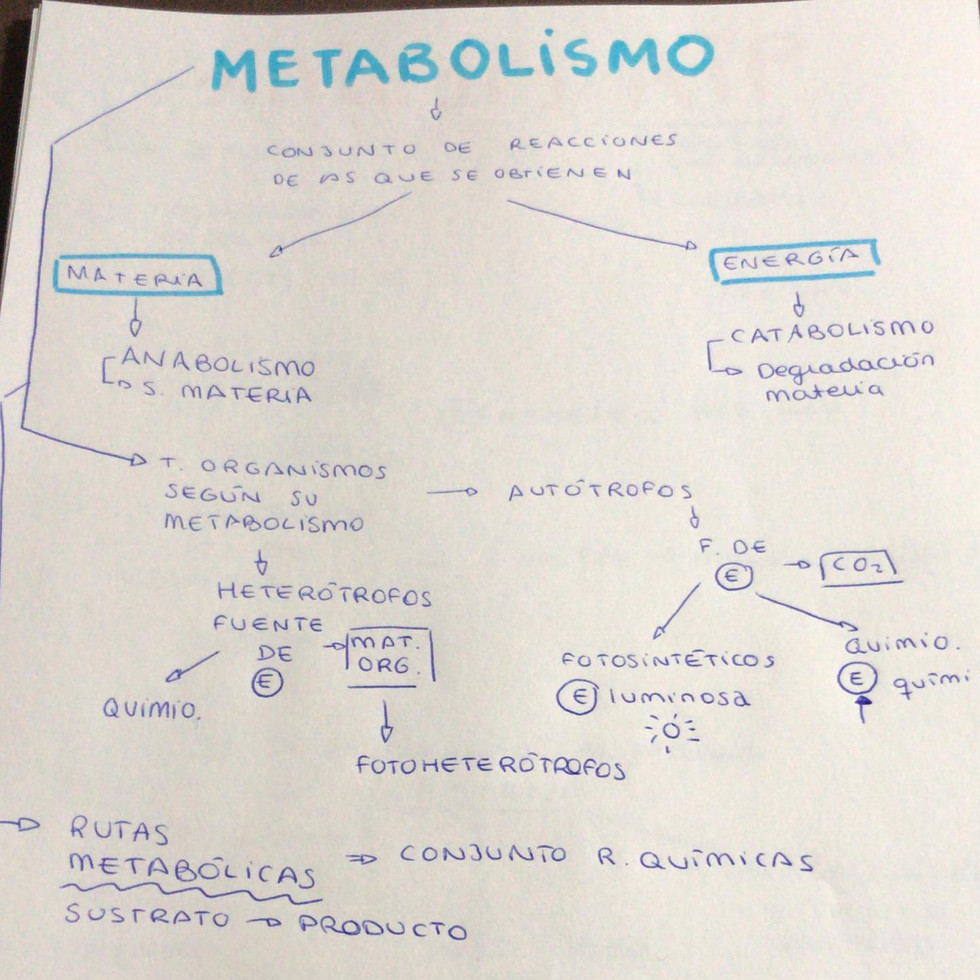 METABOLISMO
CONJUNTO DE REACCIONES
DE AS QUE SE OBTIENEN
MATERIA
ENERGÍA
ANABOLISMO
S. MATERIA
CATABOLISMO
Degradación
materia
T. ORGANISMOS
SEGÚN SU
METABOLISMO
AUTÓTROFOS
F. DE
E
CO2
HETERÓTROFOS
FUENTE
DE
E
MAT.
ORG.
QUIMIO.
FOTOHETERÓTROFOS
FOTOSINTÉTICOS
E luminosa
QUIMIO.
E quími
RUTAS
METABÓLICAS
CONJUNTO R. QUÍMICAS
SUSTRATO → PRODUCTO